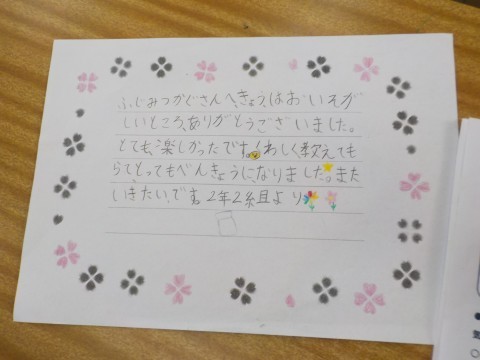 ふじみつかぐさんへ、きょうはおいそが
しいところ、ありがとうございました。
とても、楽しかったです。くわしく教えても
らてとってもべんきょうになりました。また
いきたいです。2年2組より